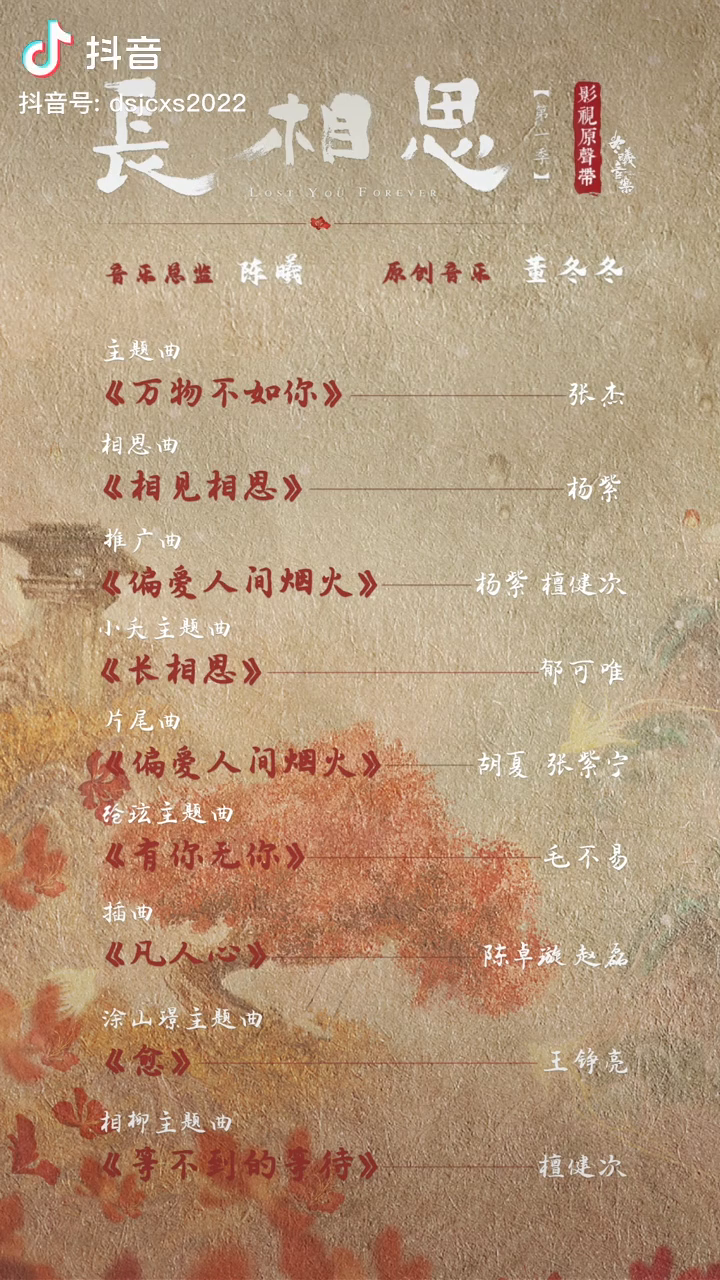 抖音
抖音号: dsjcxs2022
長相思
【第一季】
影視原聲帶
LOST YOU FOREVER
音乐总监 陈曦 原创音乐 董冬冬
主题曲
《万物不如你》 张杰
相思曲
《相见相思》 杨紫
推广曲
《偏爱人间烟火》 杨紫 檀健次
小夭主题曲
《长相思》 郁可唯
片尾曲
《偏爱人间烟火》 胡夏 张紫宁
玱玹主题曲
《有你无你》 毛不易
插曲
《凡人心》 陈卓璇 赵磊
涂山璟主题曲
《愈》 王铮亮
相柳主题曲
《等不到的等待》 檀健次